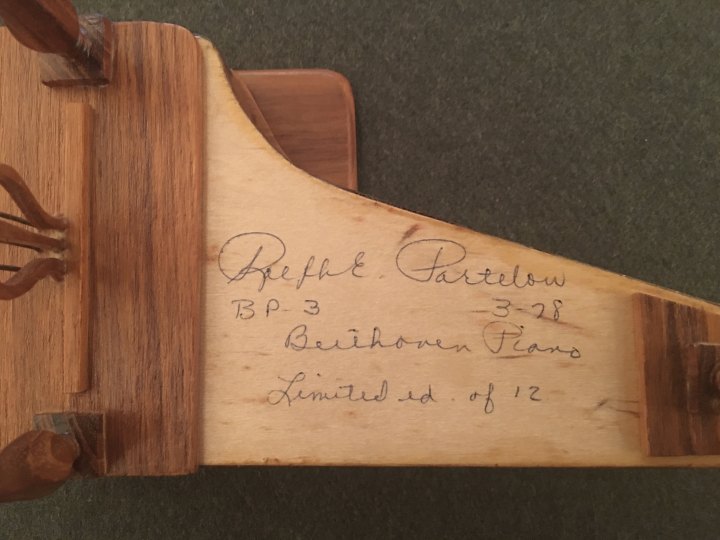 Ralph E. Partelow
BP-3 3-78
Beethoven Piano
Limited ed. of 12